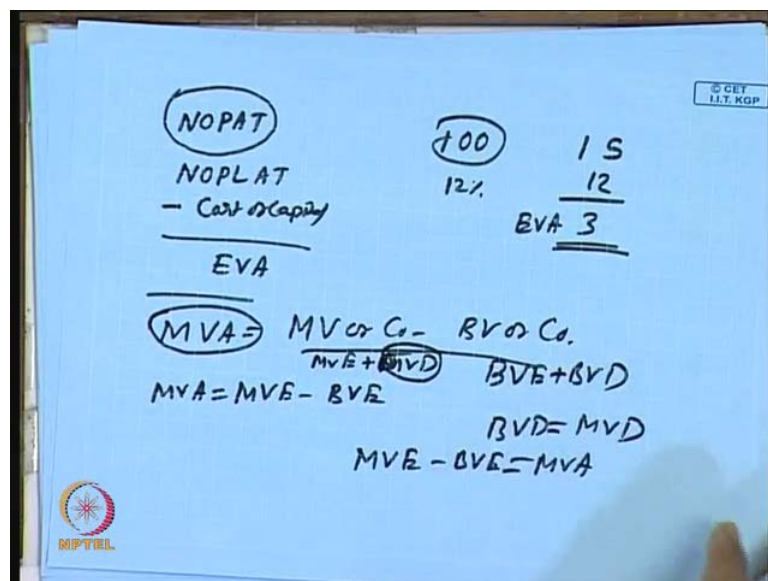 © CET
I.I.T. KGP
NOPAT
100 15
NOPLAT 12% 12
- Cost of Capital EVA 3
EVA
MVA = MV of Co - BV of Co.
MVE + MVD BVE + BVD
MVA = MVE - BVE
BVD = MVD
MVE - BVE = MVA
NPTEL